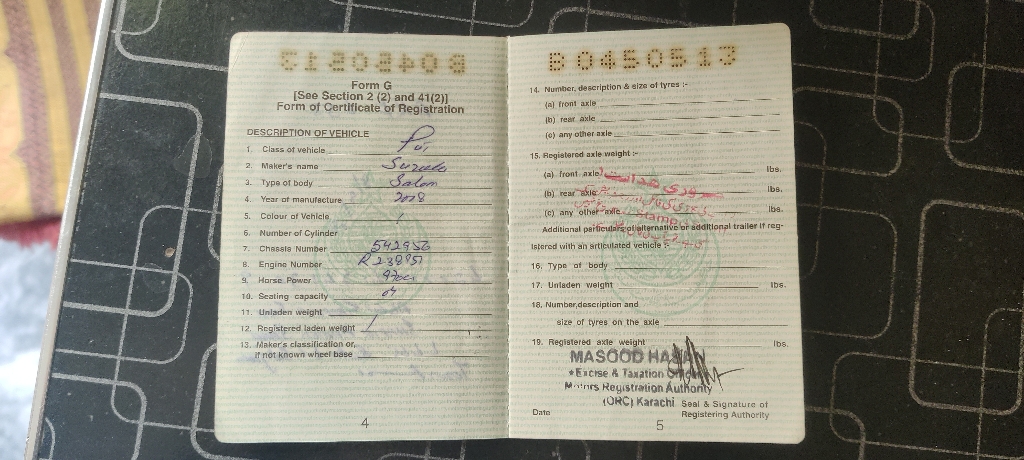 Form G
[See Section 2 (2) and 41(2)]
Form of Certificate of Registration
DESCRIPTION OF VEHICLE
1. Class of vehicle
2. Maker's name Suzuki
3. Type of body Salon
4. Year of manufacture 2008
5. Colour of Vehicle
6. Number of Cylinder
7. Chassis Number 542956
8. Engine Number
9. Horse Power
10. Seating capacity 04
11. Unladen weight
12. Registered laden weight
13. Maker's classification or,
if not known wheel base
4
B0450513
14. Number, description & size of tyres :-
(a) front axle
(b) rear axle
(c) any other axle
15. Registered axle weight :-
(a) front axle lbs.
(b) rear axle lbs.
(c) any other axle lbs.
Additional particulars of alternative or additional trailer if reg-
istered with an articulated vehicle :-
16. Type of body
17. Unladen weight lbs.
18. Number,description and
size of tyres on the axle
19. Registered axle weight lbs.
MASOOD HASAN
Excise & Taxation
Motors Registration Authority
(ORC) Karachi
Seal & Signature of
Date Registering Authority
5